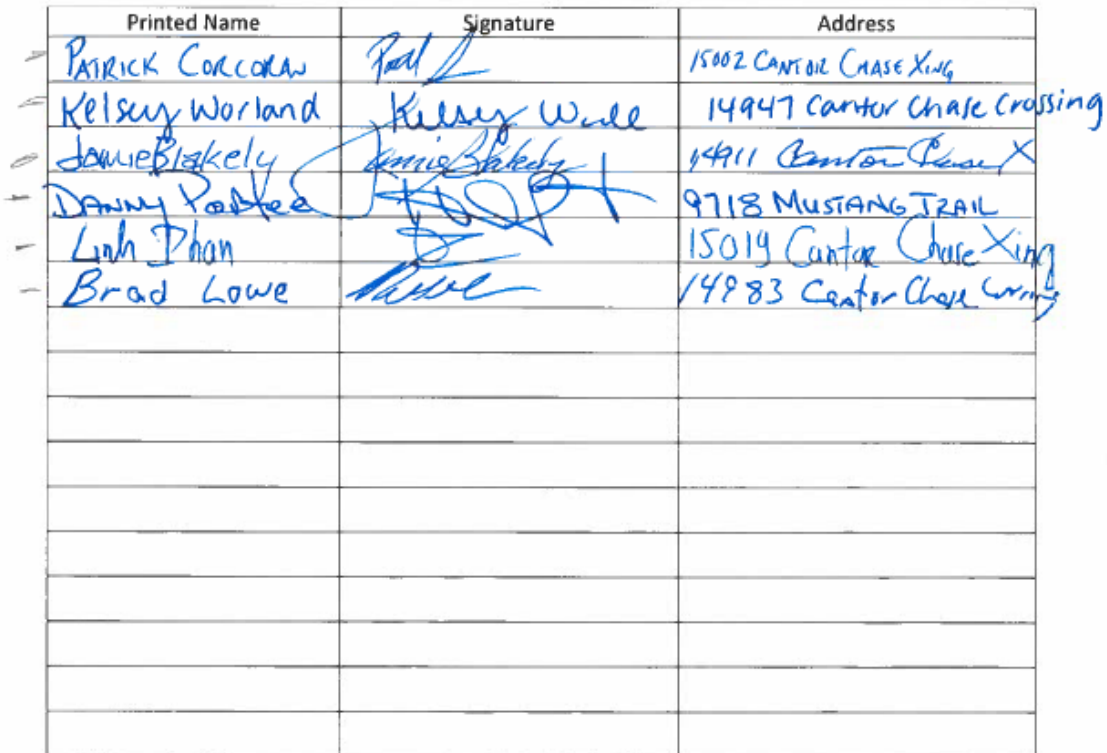 Printed Name Signature Address
PATRICK CORCORAN 15002 CANTOR CHASE XING
Kelsey Worland Kelsey 14947 Cantor Chase Crossing
Jamie Blakely Jamie Blakely 14911 Canton Chase X
DANNY 9718 MUSTANG TRAIL
Linh Phan 15019 Cantor Chase Xing
Brad Lowe 14983 Cantor Chase